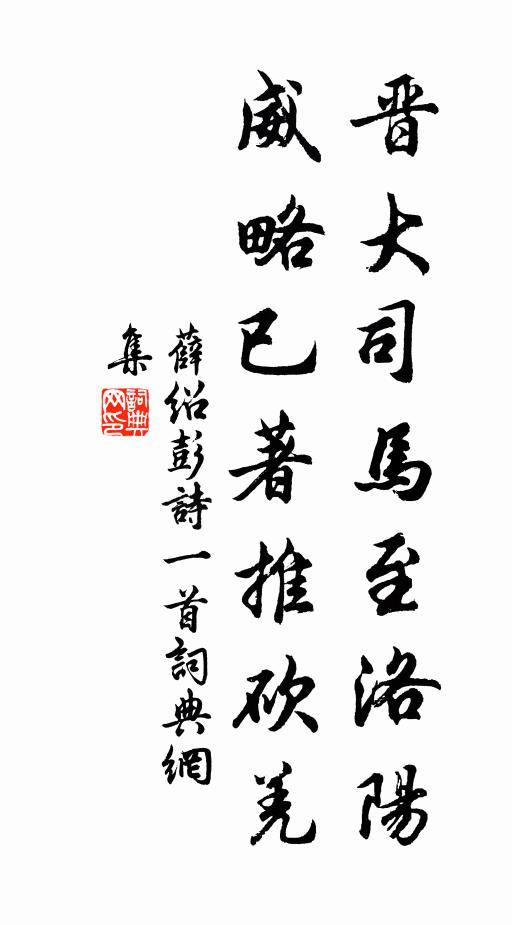 晋大司馬至洛陽
威略已著推砍羌
薛紹彭詩一首詞典網
集
詞典網印